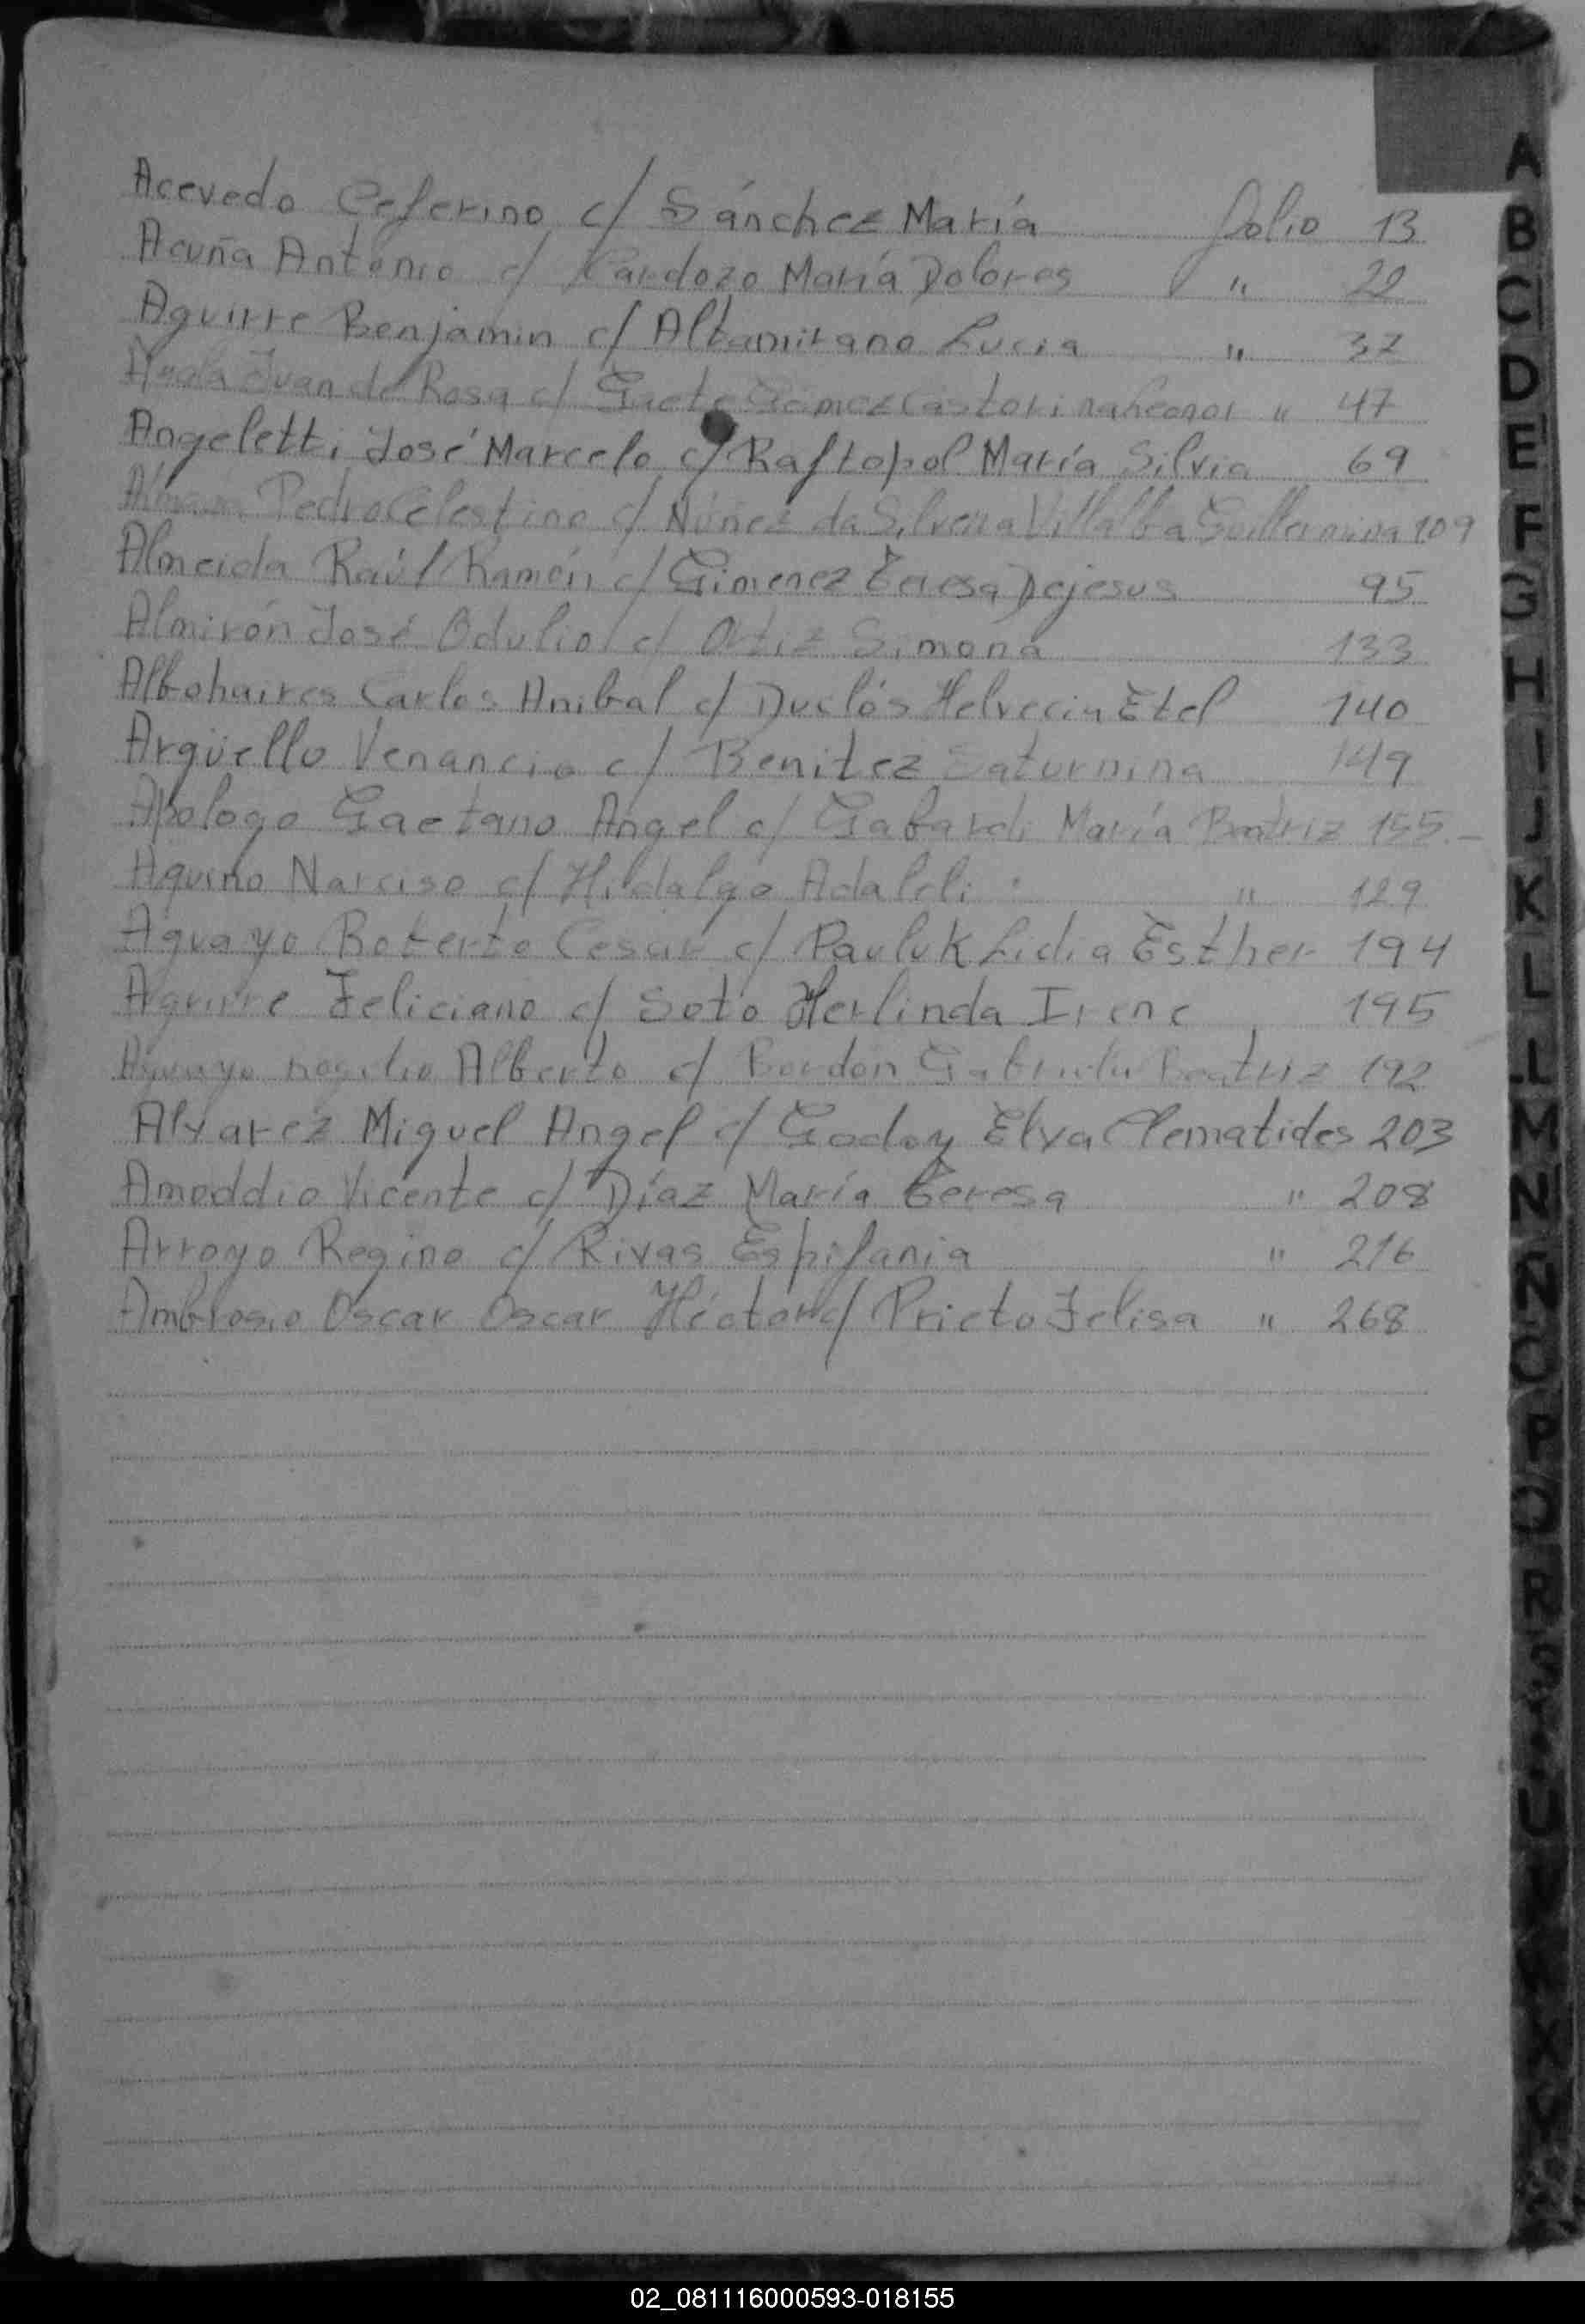 Acevedo Ceferino c/ Sánchez María folio 13
Acuña Antonio c/ Cardozo María Dolores " 22
Aguirre Benjamin c/ Altamirano Lucia " 37
Ayala Juan de Rosa c/ Gaete Gómez Castorina Leonor " 47
Angeletti José Marcelo c/ Raftopol María Silvia 69
Pedro Celestino c/ Núñez da Silveira Villalba Guillermina 109
Almeida Raúl Ramón c/ Gimenez Teresa Dejesus 95
Almirón José Odulio c/ Ortiz Simona 133
Albohaires Carlos Anibal c/ Duclós Helvecia Etel 140
Argüello Venancio c/ Benitez Saturnina 149
Apologo Gaetano Angel c/ Gabardi María Beatriz 155.-
Aquino Narciso c/ Hidalgo " 129
Aguayo Roberto Cesar c/ Pauluk Lidia Esther 194
Aguirre Feliciano c/ Soto Herlinda Irene 195
Alberto c/ Bordón Gabriela Beatriz 192
Alvarez Miguel Angel c/ Godoy Elva Clematides 203
Amoddio Vicente c/ Díaz María Teresa " 208
Arroyo Regino c/ Rivas Espifania " 216
Ambrosio Oscar Oscar Héctor c/ Prieto Felisa " 268
A
B
C
D
E
F
G
H
I
J
K
L
LL
M
N
Ñ
O
P
Q
R
S
U
V
X
Y
02_081116000593-018155